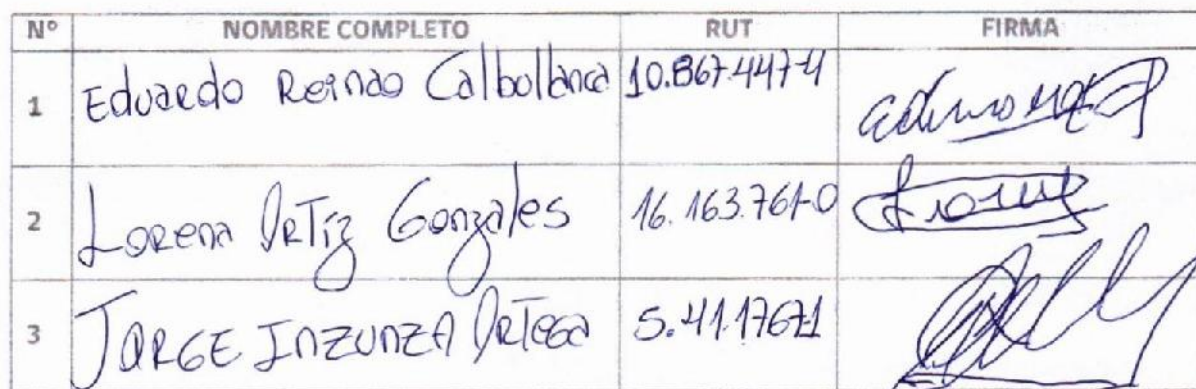 N° NOMBRE COMPLETO RUT FIRMA
1 Eduardo Reinao Calbullanca 10.867.447-4
2 Lorena Ortiz Gonzales 16.163.761-0
3 JORGE INZUNZA ORTEGA